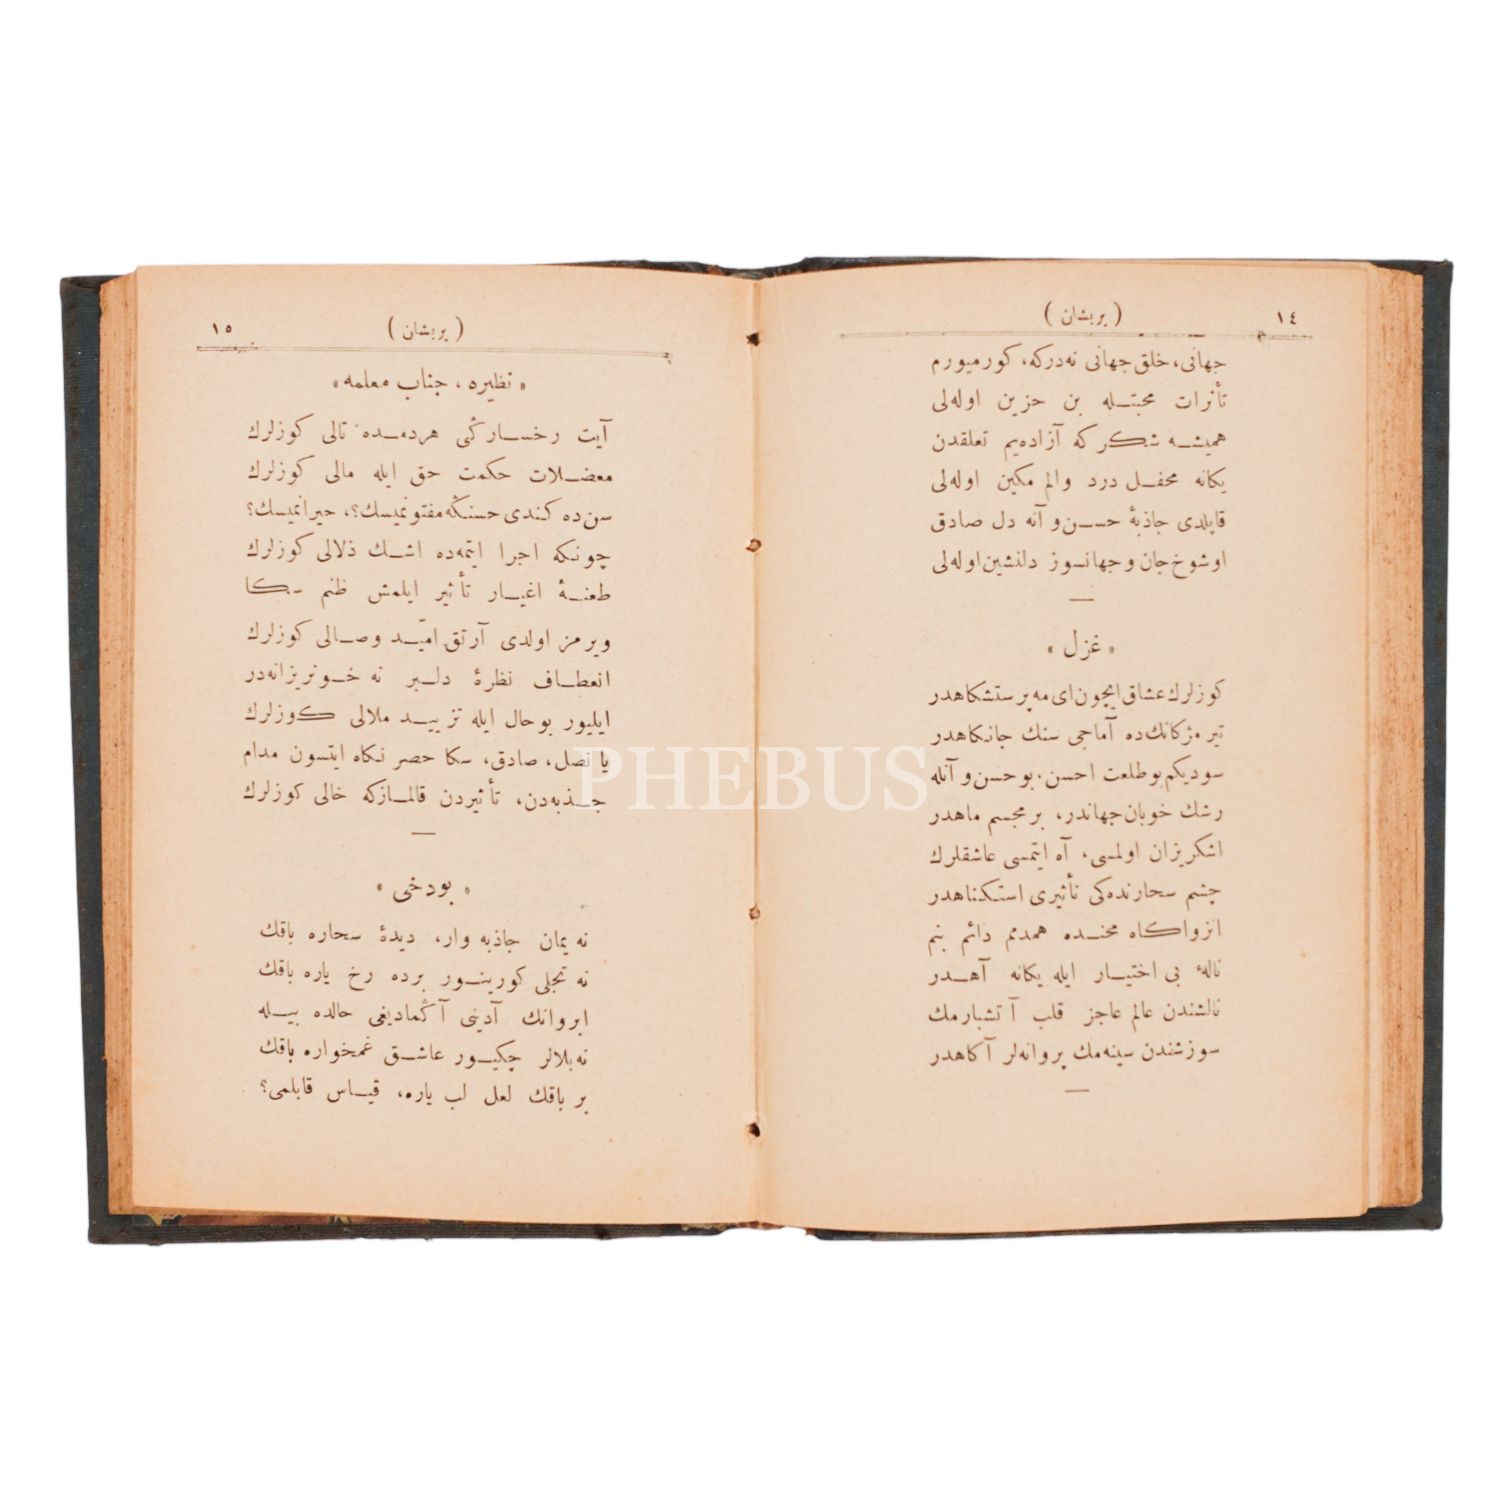 ١٤
( پریشان )
جهانی، خلق جهانی نه‌دركه، كورمیورم
تأثرات محبتـله بن حزین اوله‌لی
همیشـه شكر كه آزاده‌یم تعلقدن
یكانه محفـل درد والم مكین اوله‌لی
قاپلدی جاذبهٔ حسن و آنه دل صادق
اوشوخ جان و جهانسوز دلنشین اوله‌لی
« غزل »
كوزلرك عشاق ایچون ای مه پرستشكاهدر
تیر مژكانك‌ده آماجی سنك جانكاهدر
سودیكم بو طلعت احسن، بو حسن و آنله
رشك خوبان جهاندر، بر مجسم ماهدر
اشكریزان اولمسی، آه ایتمسی عاشقلرك
چشم سحارنده‌كی تأثیری استكناهدر
انزواكاه محنـده همدمم دائم بنم
نالهٔ بی اختیـار ایله یكانه آهـدر
نالشندن عالم عاجز قلب آتشبارمك
سوزشندن سینه‌مك پروانه‌لر آكاهدر
١٥
( پریشان )
« نظیره ، جناب معلمه »
آیت رخسـارڭی هردمـده تالی كوزلرك
معضـلات حكمت حق ایله مالی كوزلرك
سن‌ده كندی حسنڭه مفتونمیسك؟، حیرانمیسك؟
چونكه اجرا ایتمه‌ده اشـك ذلالی كوزلرك
طعنـهٔ اغیـار تأثیر ایلمش ظنم سـكا
ویرمز اولدی آرتق امیّـد وصـالی كوزلرك
انعطـاف نظرهٔ دلـبر نه خـونریزانه‌در
ایلیور بوحال ایله تزییـد ملالی كوزلرك
یا نصل، صادق، سكا حصر نكاه ایتسون مدام
جـذبه‌دن، تأثیردن قالمـازكه خالی كوزلرك
« بودخی »
نه یمان جاذبه وار، دیدهٔ سحاره باقك
نه تجلی كورینـور برده رخ یاره باقك
ابروانك آدینی آڭمادیغی حالده بیـله
نه بلالر چكیـور عاشـق غمخواره باقك
بر باقك لعل لب یاره، قیـاس قابلمی؟
PHEBUS